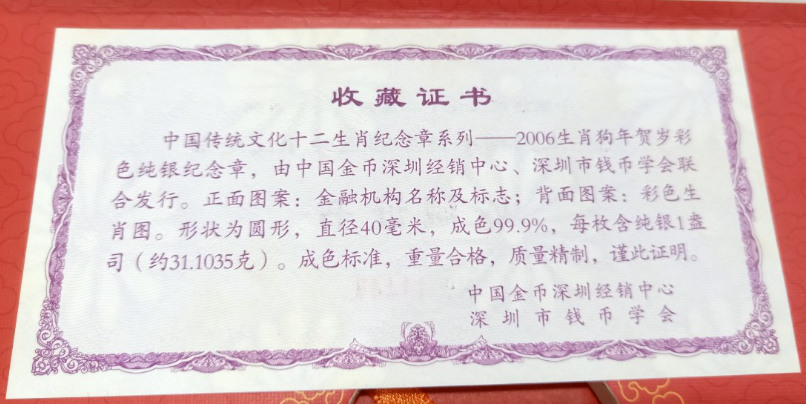 收藏证书
中国传统文化十二生肖纪念章系列——2006生肖狗年贺岁彩
色纯银纪念章，由中国金币深圳经销中心、深圳市钱币学会联
合发行。正面图案：金融机构名称及标志；背面图案：彩色生
肖图。形状为圆形，直径40毫米，成色99.9%，每枚含纯银1盎
司（约31.1035克）。成色标准，重量合格，质量精制，谨此证明。
中国金币深圳经销中心
深圳市钱币学会